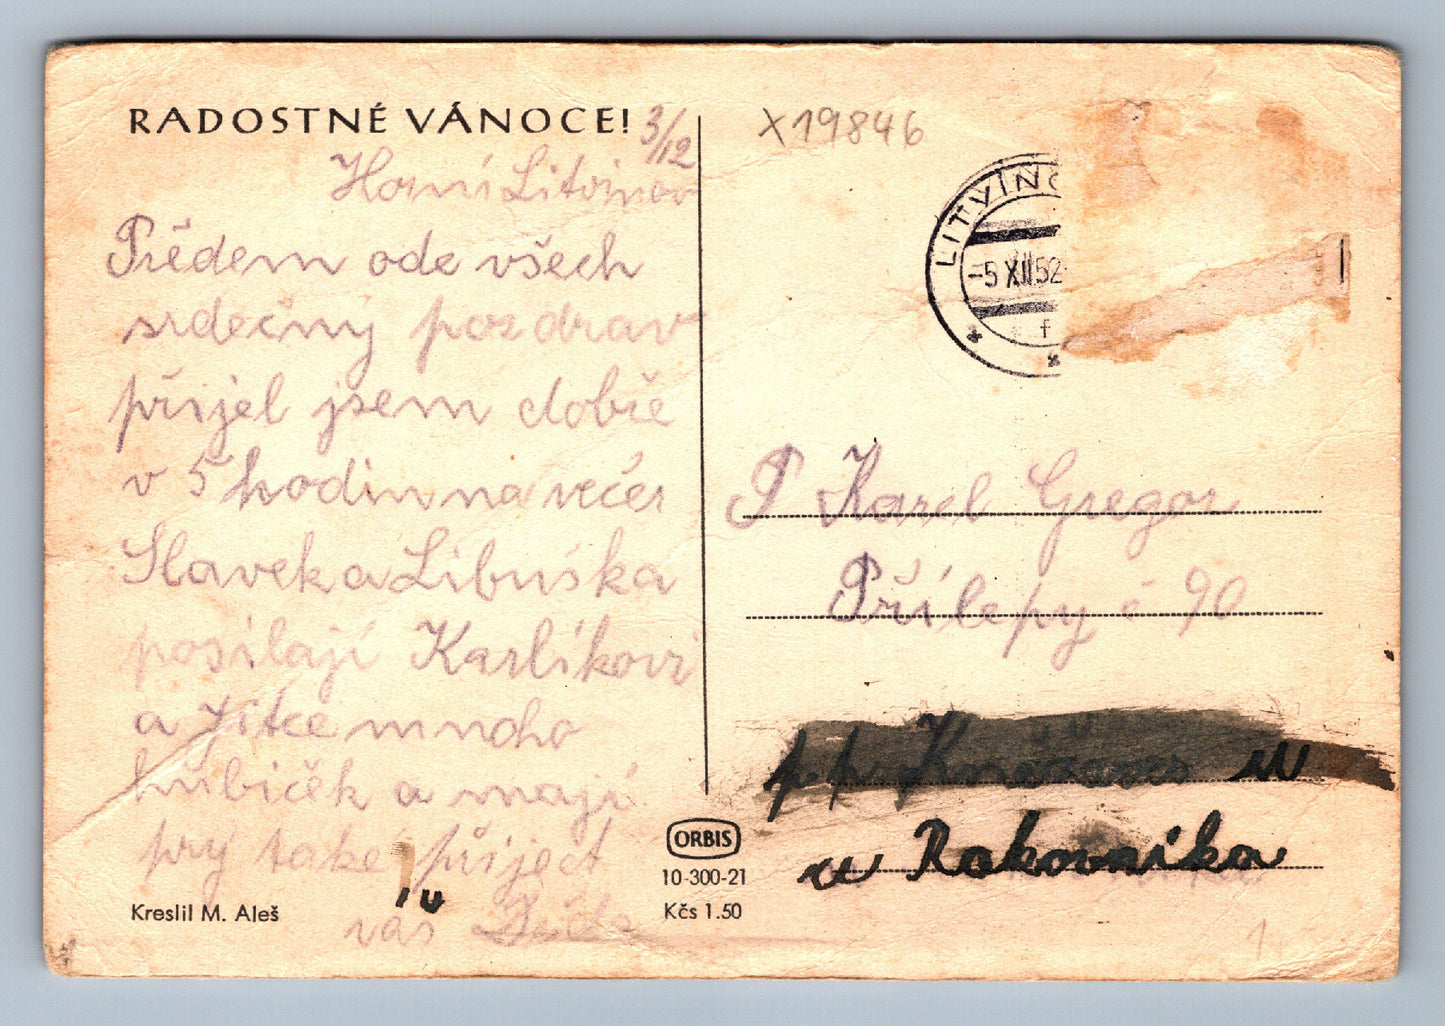 RADOSTNÉ VÁNOCE! 3/12
Horní Litvínov
Předem ode všech
srdečný pozdrav
přijel jsem dobře
v 5 hodin na večer
Slavek a Libuška
posílají Karlíkovi
a Jitce mnoho
hubiček a mají
prý také přiject
váš
Kreslil M. Aleš
ORBIS
10-300-21
Kčs 1.50
X19846
LITVÍNO
-5 XII 52
* f
*
P Karel Gregor
Přílepy č 90
p. p. Kněževes u
u Rakovníka
1